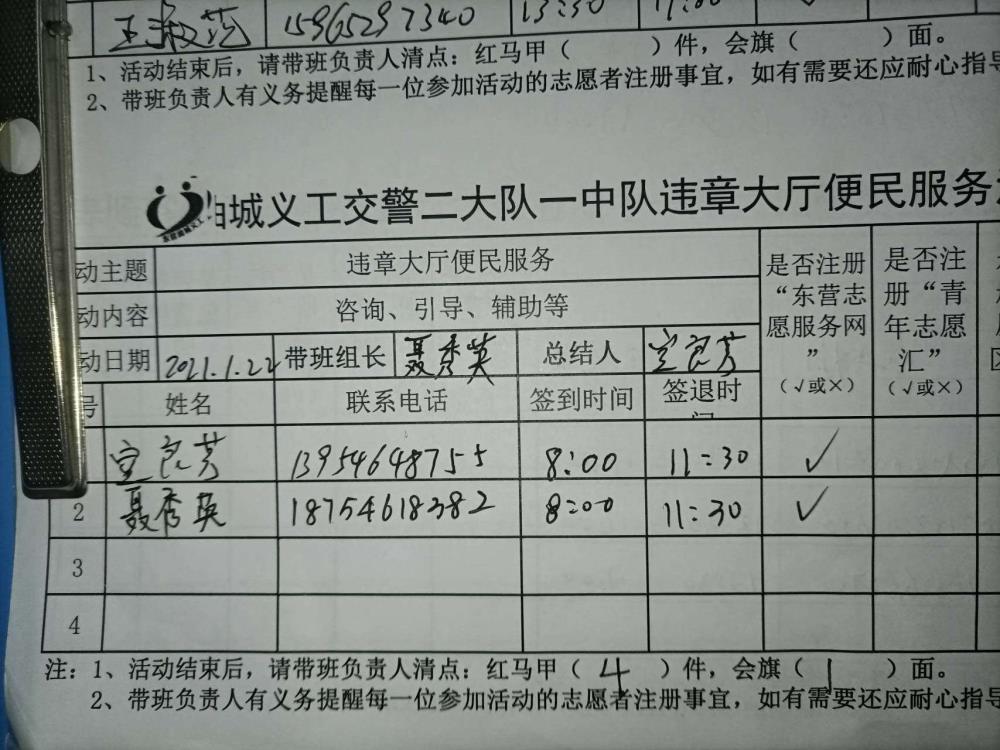 王淑范 15965297340 13:30 17:00
1、活动结束后，请带班负责人清点：红马甲（ ）件，会旗（ ）面。
2、带班负责人有义务提醒每一位参加活动的志愿者注册事宜，如有需要还应耐心指导
城义工交警二大队一中队违章大厅便民服务
动主题 违章大厅便民服务 是否注册“东营志愿服务网”（√或×） 是否注册“青年志愿汇”（√或×）
动内容 咨询、引导、辅助等
动日期 2021.1.22 带班组长 聂秀英 总结人 宝良芳
号 姓名 联系电话 签到时间 签退时间
宝良芳 13954648755 8:00 11:30 ✓
2 聂秀英 18754618382 8:00 11:30 ✓
3
4
注：1、活动结束后，请带班负责人清点：红马甲（ 4 ）件，会旗（ 1 ）面。
2、带班负责人有义务提醒每一位参加活动的志愿者注册事宜，如有需要还应耐心指导